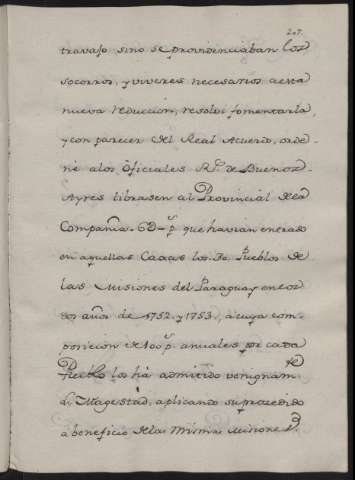 207.
travajo sino se providenciaban los
socorros, y viveres necesarios a esta
nueva reduccion, resolvi fomentarla,
y con parecer del Real Acuerdo, orde-
nè a los Oficiales R.s de Buenos
Ayres librasen al Provincial de la
Compañia 6D p.s que havian entrado
en aquellas Caxas los 30 Pueblos de
las Misiones del Paraguay en los
dos años de 1752. y 1753., a cuya com-
posicion de 100 p.s anuales por cada
Pueblo los ha admitido venignam.te
S. Magestad, aplicando su procedido
à beneficio de las mismas misiones.